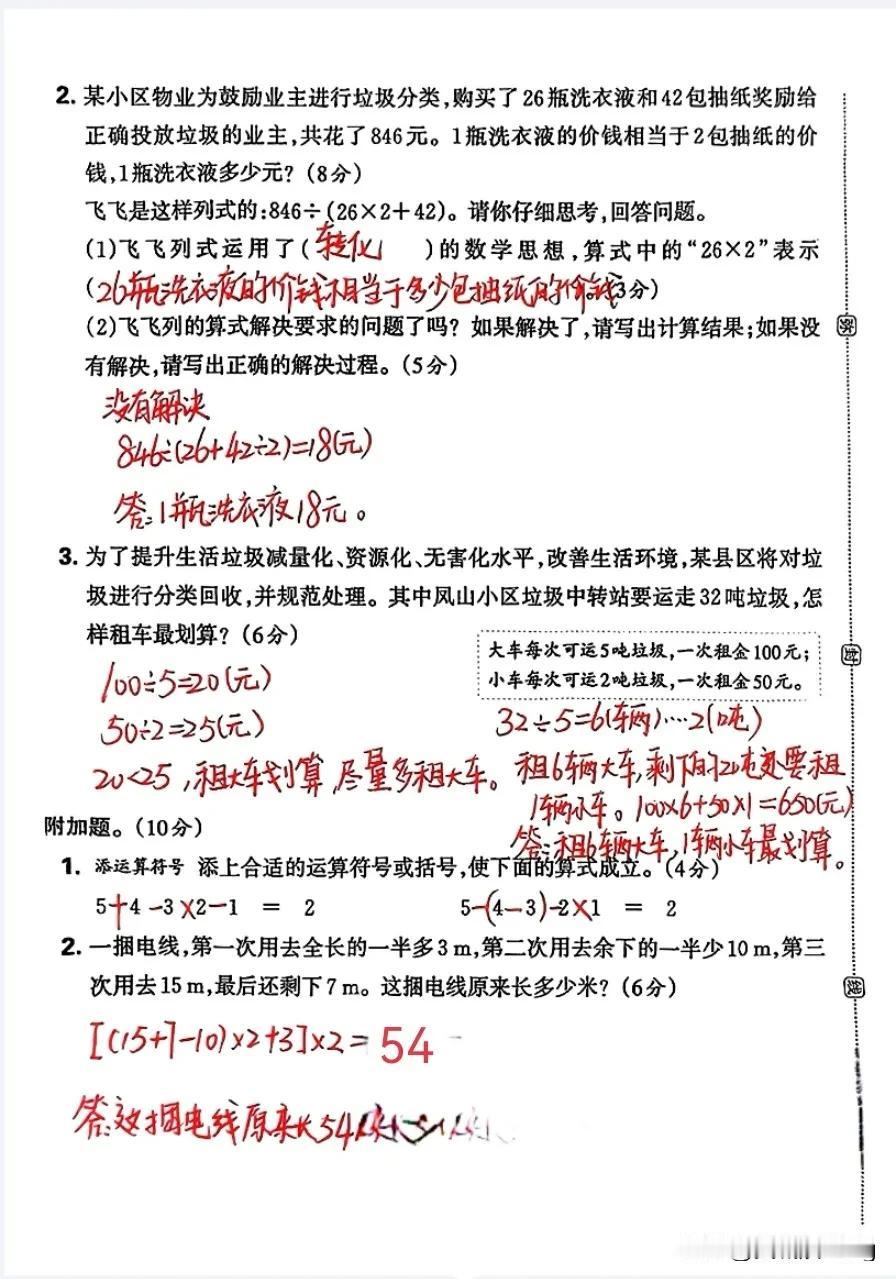 2. 某小区物业为鼓励业主进行垃圾分类,购买了26瓶洗衣液和42包抽纸奖励给
正确投放垃圾的业主,共花了846元。1瓶洗衣液的价钱相当于2包抽纸的价
钱,1瓶洗衣液多少元?(8分)
飞飞是这样列式的:846÷(26×2+42)。请你仔细思考,回答问题。
(1)飞飞列式运用了(转化)的数学思想,算式中的“26×2”表示
(26瓶洗衣液的价钱相当于多少包抽纸的价钱 3分)
(2)飞飞列的算式解决要求的问题了吗?如果解决了,请写出计算结果;如果没
有解决,请写出正确的解决过程。(5分)
没有解决
846÷(26+42÷2)=18(元)
答:1瓶洗衣液18元。
3. 为了提升生活垃圾减量化、资源化、无害化水平,改善生活环境,某县区将对垃
圾进行分类回收,并规范处理。其中凤山小区垃圾中转站要运走32吨垃圾,怎
样租车最划算?(6分)
大车每次可运5吨垃圾,一次租金100元;
小车每次可运2吨垃圾,一次租金50元。
100÷5=20(元)
50÷2=25(元)
20<25,租大车划算,尽量多租大车。
32÷5=6(车辆)…2(吨)
租6辆大车,剩下的2吨垃圾要租
1辆小车。100×6+50×1=650(元)
答:租6辆大车,1辆小车最划算。
附加题。(10分)
1. 添运算符号 添上合适的运算符号或括号,使下面的算式成立。(4分)
5+4-3×2-1 = 2 5-(4-3)-2×1 = 2
2. 一捆电线,第一次用去全长的一半多3 m,第二次用去余下的一半少10 m,第三
次用去15 m,最后还剩下7 m。这捆电线原来长多少米?(6分)
[(15+7-10)×2+3]×2=54
答:这捆电线原来长54
密
封
线